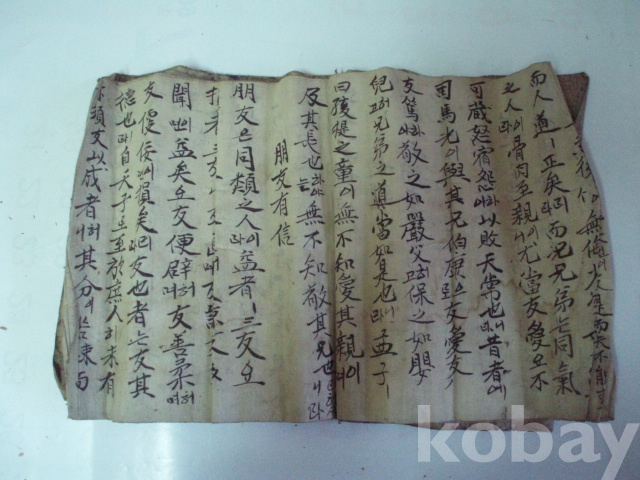 而人道ㅣ正矣리라而况兄弟는同氣
之人이라骨肉至親이니尤當友愛오不
可藏怒宿怨하야以敗天常也니라昔者에
司馬光이與其兄伯康으로友愛尤
篤하야敬之如嚴父하고保之如嬰
兒고兄弟之道當如是也니라孟子ㅣ
曰孩提之童이無不知愛其親이며
及其長也하야는無不知敬其兄也니라
朋友有信
朋友는同類之人이라益者ㅣ三友요
三友 友 友
聞이면益矣요友便辟하며友善柔하며
友便佞이면損矣리라友也者는友其
德也라自天子로至於庶人히未有
須友以成者하니其分이若疎而
kobay